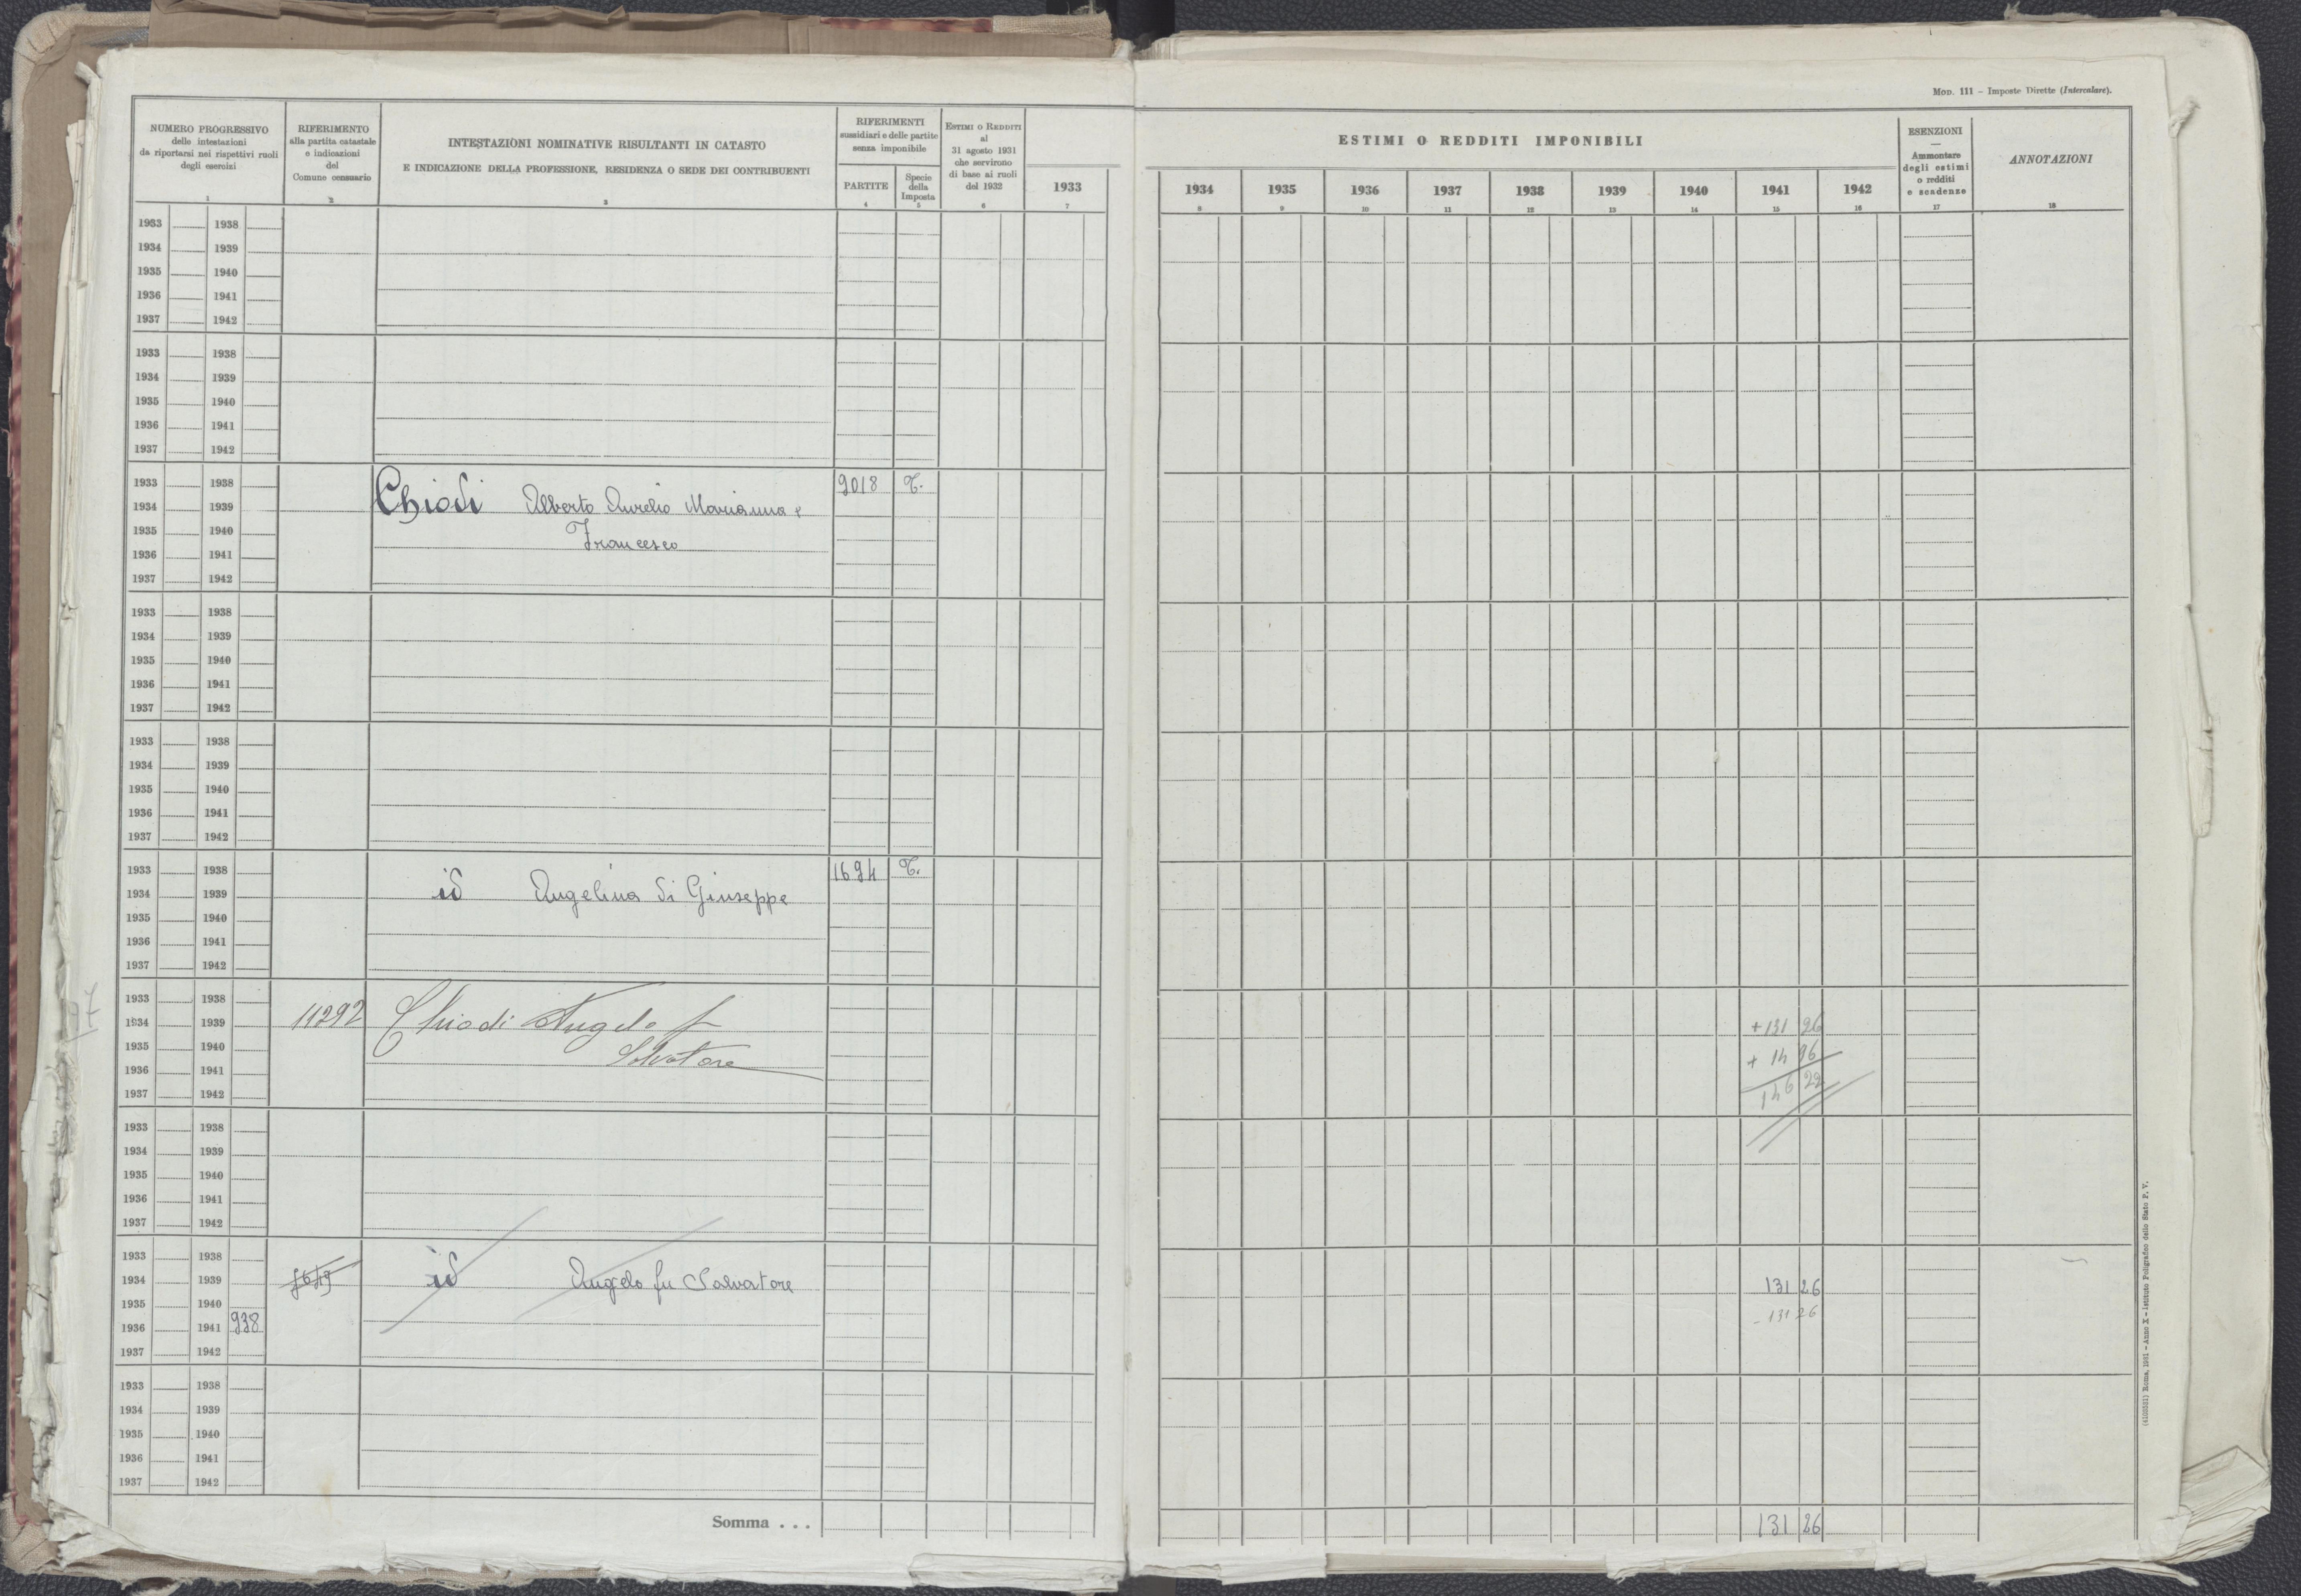 MOD. 111 – Imposte Dirette (Intercalare).
NUMERO PROGRESSIVO
delle intestazioni
da riportarsi nei rispettivi ruoli
degli esercizi
1
RIFERIMENTO
alla partita catastale
e indicazioni
del
Comune censuario
2
INTESTAZIONI NOMINATIVE RISULTANTI IN CATASTO
E INDICAZIONE DELLA PROFESSIONE, RESIDENZA O SEDE DEI CONTRIBUENTI
3
RIFERIMENTI
sussidiari e delle partite
senza imponibile
PARTITE
4
Specie
della
Imposta
5
ESTIMI O REDDITI
al
31 agosto 1931
che servirono
di base ai ruoli
del 1932
6
1933
7
ESTIMI O REDDITI IMPONIBILI
1934 1935 1936 1937 1938 1939 1940 1941 1942
8 9 10 11 12 13 14 15 16
ESENZIONI
—
Ammontare
degli estimi
o redditi
e scadenze
17
ANNOTAZIONI
18
1933 1938
1934 1939
1935 1940
1936 1941
1937 1942
1933 1938
1934 1939
1935 1940
1936 1941
1937 1942
1933 1938 9018 T.
1934 1939 Chiodi Alberto Aurelio Marianna e
1935 1940 Francesco
1936 1941
1937 1942
1933 1938
1934 1939
1935 1940
1936 1941
1937 1942
1933 1938
1934 1939
1935 1940
1936 1941
1937 1942
1933 1938 1694 T.
1934 1939 id Angelina di Giuseppe
1935 1940
1936 1941
1937 1942
1933 1938
1934 1939 11292 Chiodi Angelo f +131 26
1935 1940 Salvatore + 14 96
1936 1941 146 22
1937 1942
1933 1938
1934 1939
1935 1940
1936 1941
1937 1942
1933 1938
1934 1939 id Angelo fu Salvatore 131 26
1935 1940 - 131 26
1936 1941 938
1937 1942
1933 1938
1934 1939
1935 1940
1936 1941
1937 1942
Somma . . . 131 26
(4103531) Roma, 1931 – Anno X – Istituto Poligrafico dello Stato P. V.